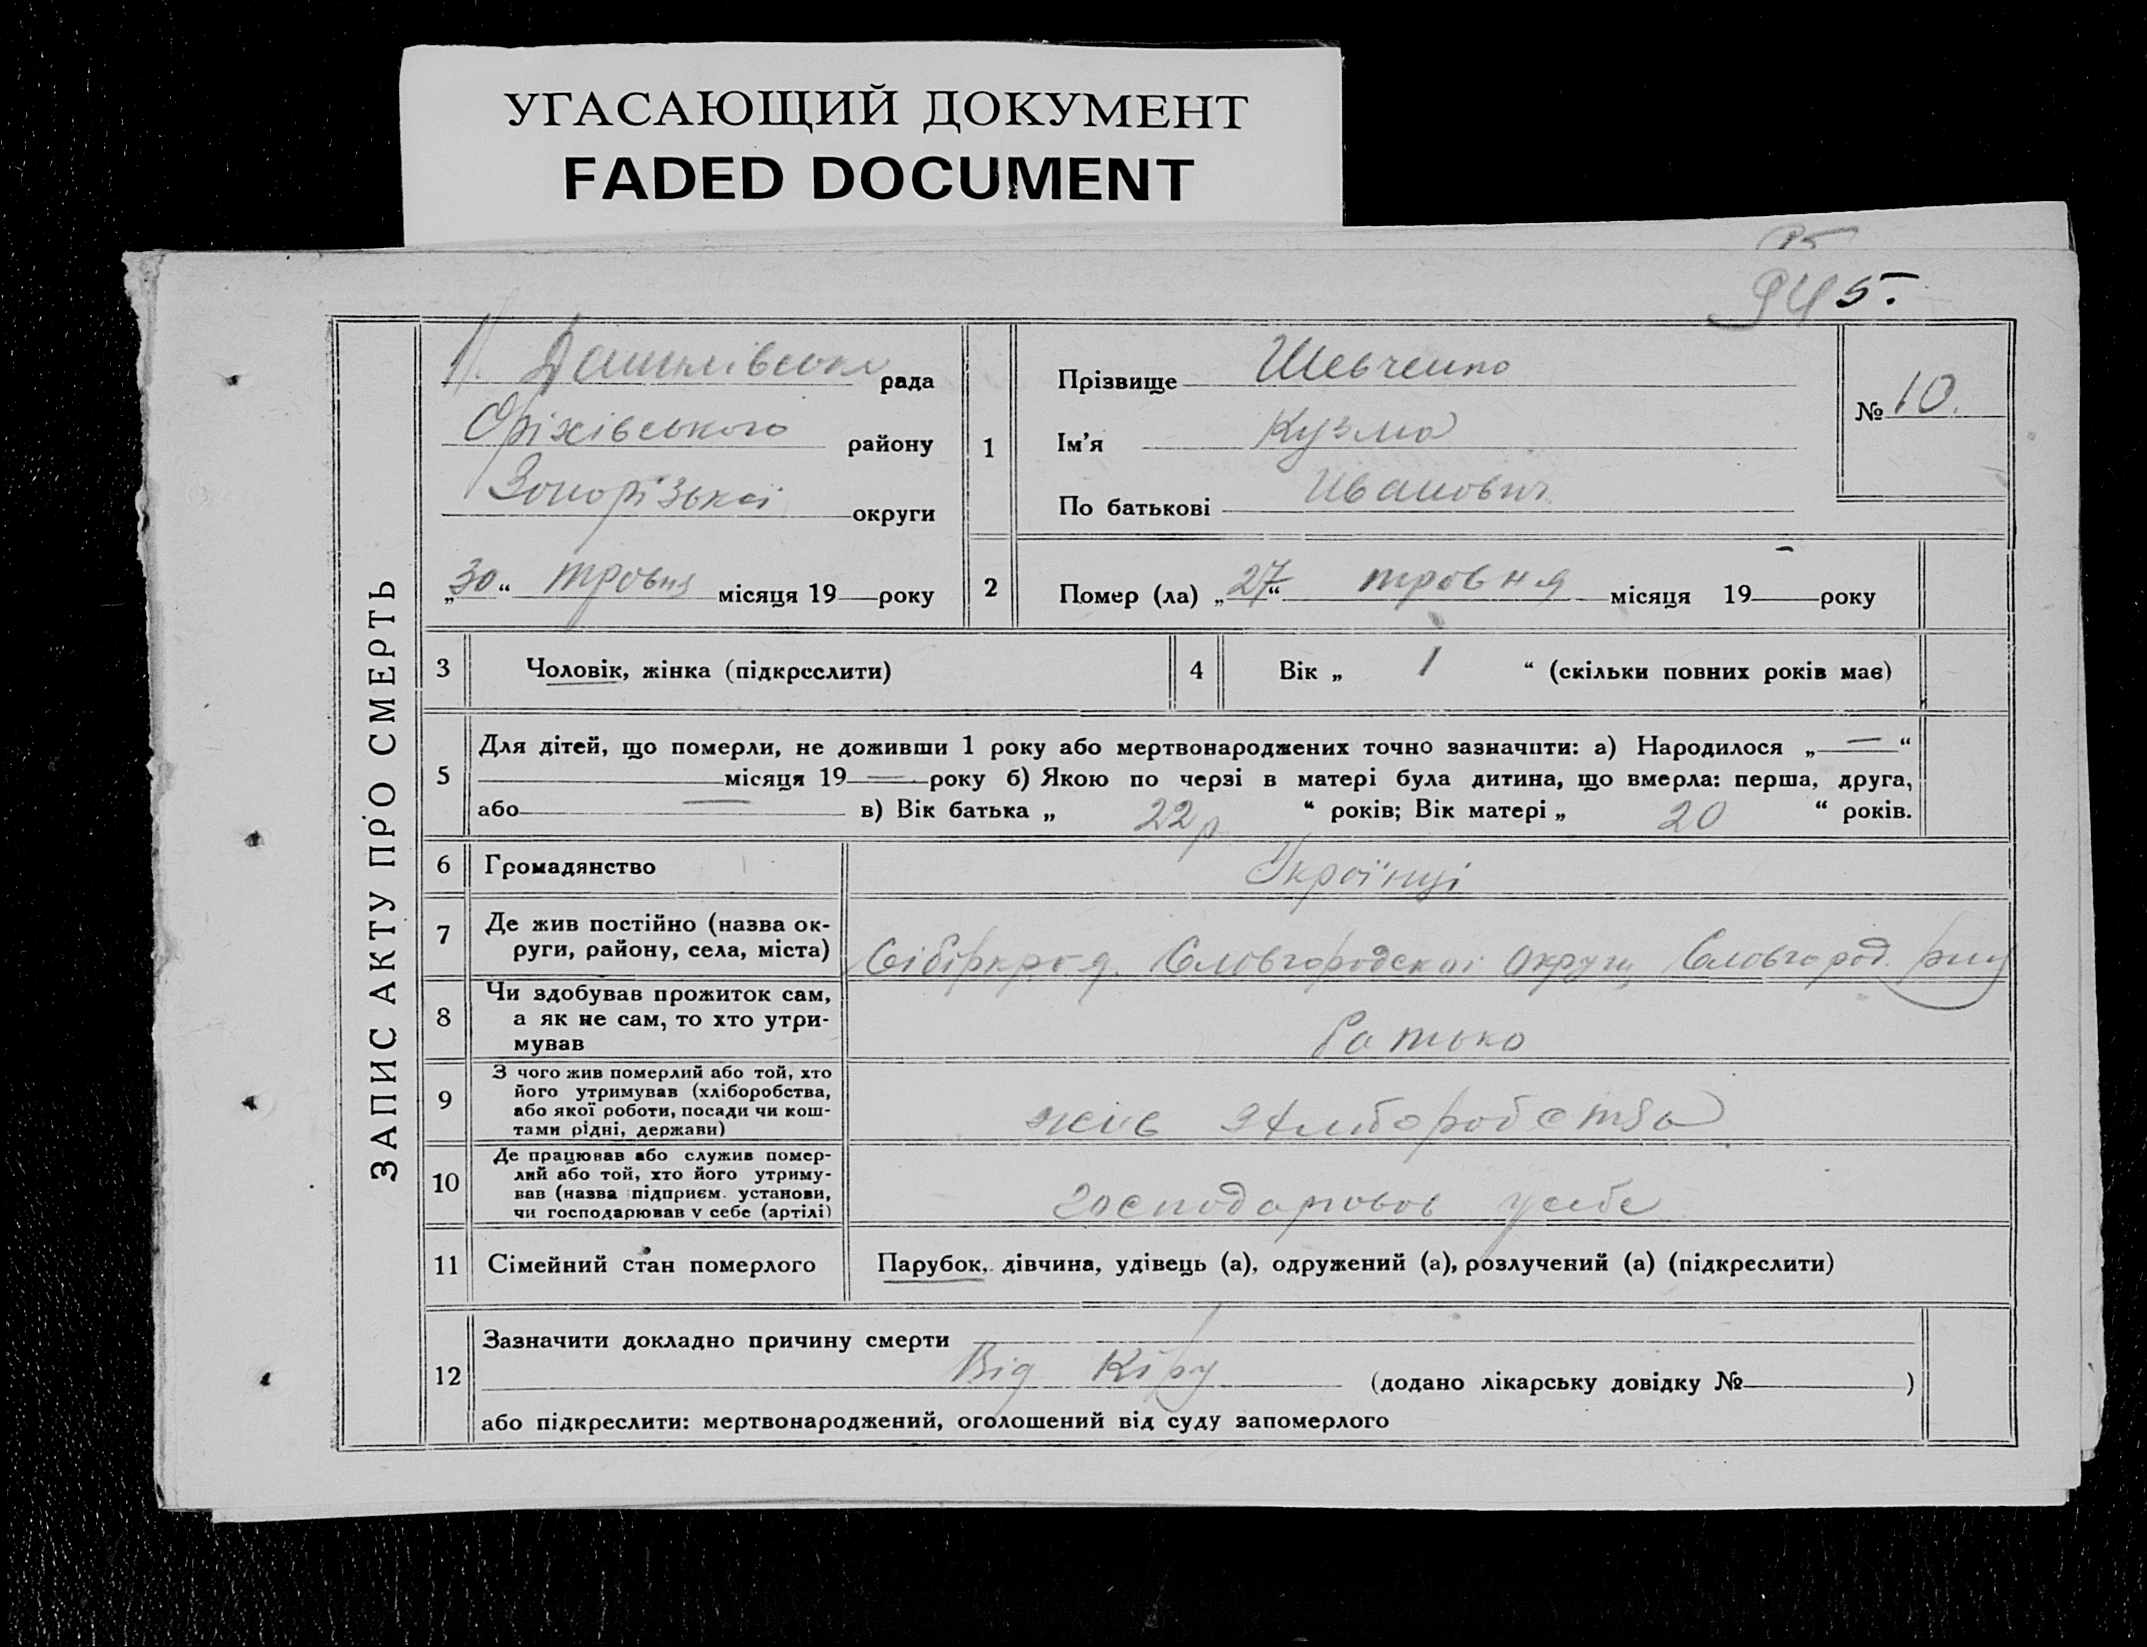 УГАСАЮЩИЙ ДОКУМЕНТ
FADED DOCUMENT
945.
ЗАПИС АКТУ ПРО СМЕРТЬ
рада
Оріхівського району
Запорізької округи
„30“ травня місяця 19—року
1
Прізвище Шевченко
Ім'я Кузма
По батькові Иванович
№ 10.
2
Помер (ла) „27“ травня місяця 19—року
3
Чоловік, жінка (підкреслити)
4
Вік „ 1 “ (скільки повних років має)
5
Для дітей, що померли, не доживши 1 року або мертвонароджених точно зазначити: а) Народилося „—“
місяця 19—року б) Якою по черзі в матері була дитина, що вмерла: перша, друга,
або — в) Вік батька „ 22 р “ років; Вік матері „ 20 “ років.
6
Громадянство
Україтці
7
Де жив постійно (назва ок-
руги, району, села, міста)
Сібіркрая. Славгородскої округи Славгород. рну
8
Чи здобував прожиток сам,
а як не сам, то хто утри-
мував
батько
9
З чого жив померлий або той, хто
його утримував (хліборобства,
або якої роботи, посади чи кош-
тами рідні, держави)
жив хліборобства
10
Де працював або служив помер-
лий або той, хто його утриму-
вав (назва підприєм. установи,
чи господарював у себе (артілі)
господарював у себе
11
Сімейний стан померлого
Парубок, дівчина, удівець (а), одружений (а), розлучений (а) (підкреслити)
12
Зазначити докладно причину смерти
Від Кіру
(додано лікарську довідку №—)
або підкреслити: мертвонароджений, оголошений від суду запомерлого